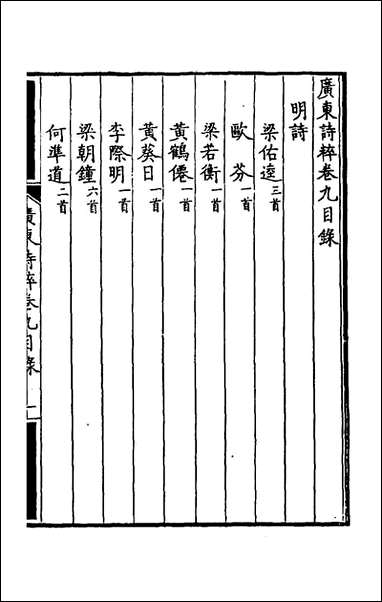 廣東詩粹卷九目錄
明詩
梁佑逵三首
歐芬一首
梁若衡一首
黃鶴僊一首
黃葵日一首
李際明一首
梁朝鐘六首
何準道二首
廣東詩粹卷九目錄 一